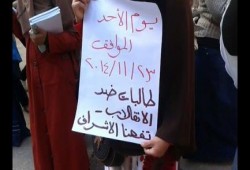 يوم الأحد
الموافق
٢٠١٤/١١/٢٣
طالبات ضد
الانقلاب -
تفهنا الأشراف